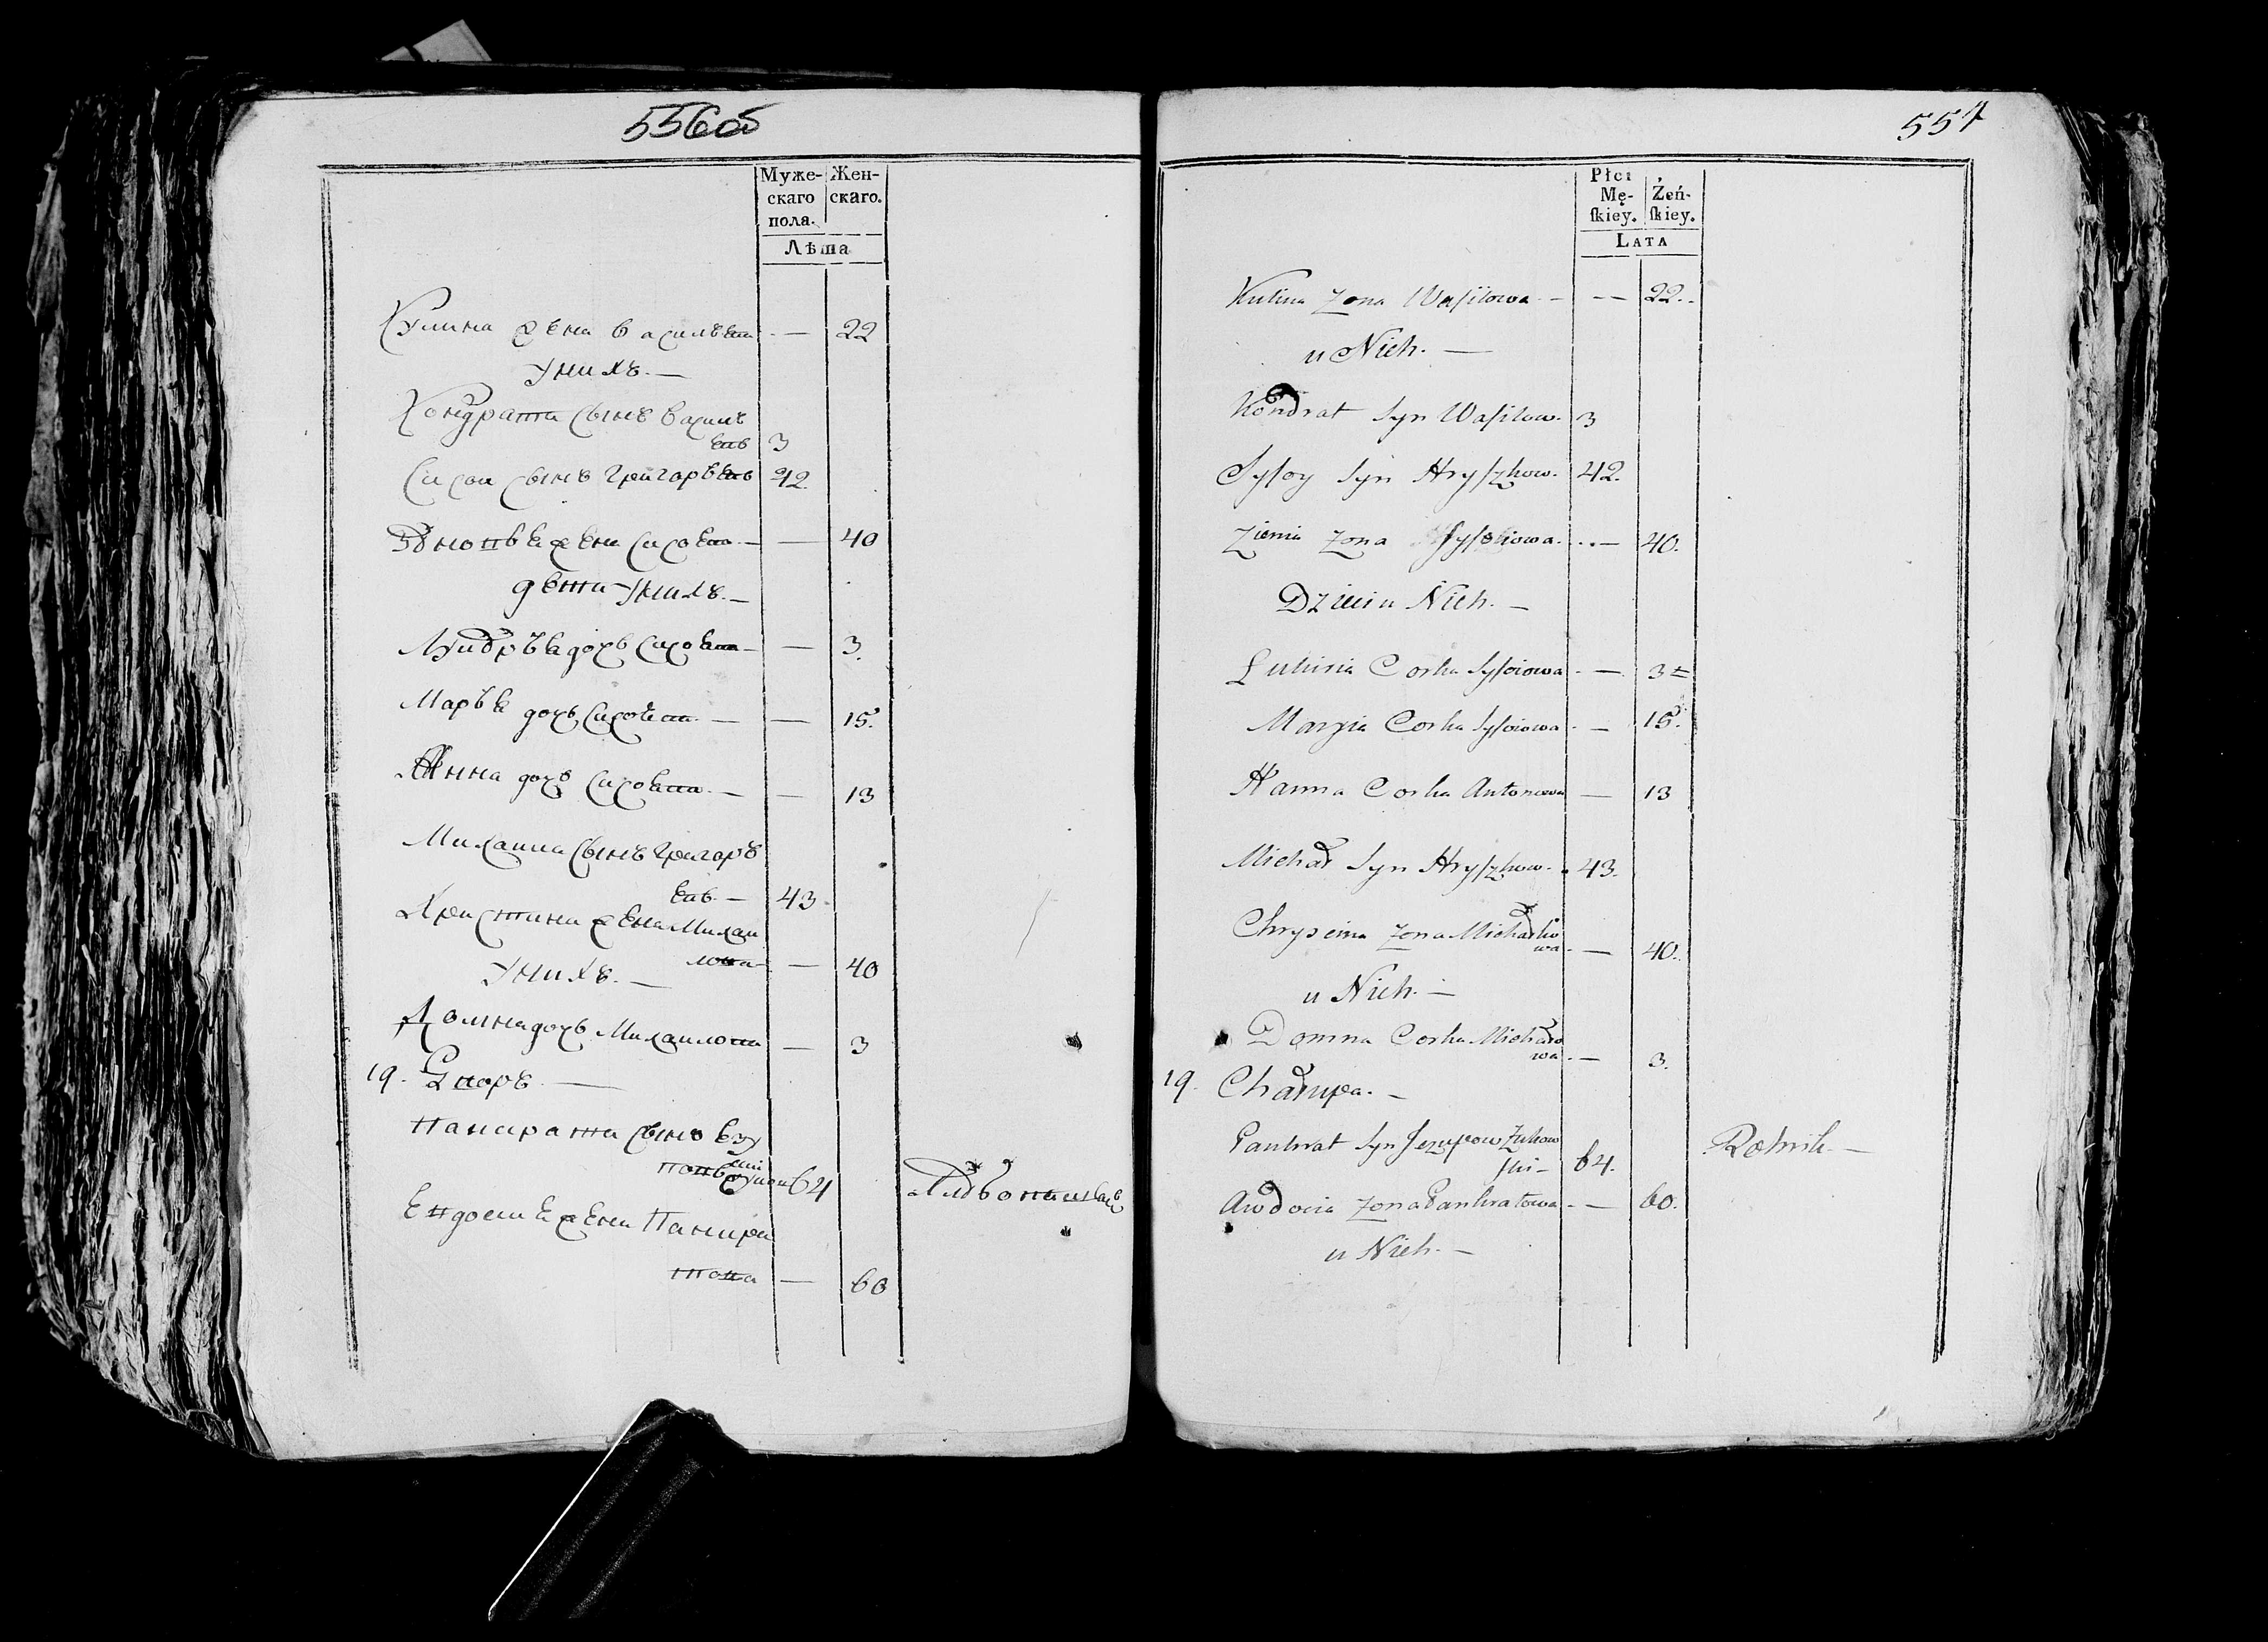 556об
Муже- Жен-
скаго скаго.
пола.
Лѣта
Кулина жена василѣва — 22
Унихъ. —
Кондратъ сынъ василь
евъ 3
Сисои сынъ григорьевъ 42
жена сисоева — — 40
дѣти Унихъ. —
дочь сисоева — — 3.
Марья дочь сисоева — — 15.
Анна дочь сисоева — — 13
Михаила сынъ григорь
евъ. — 43.
Христина жена Михаи
лова — — 40
Унихъ. —
Домна дочь Михаилова — 3
19. Дворъ —
Панкратъ сынъ
64
жена Панкра
това — 60
557
Płci
Mę- Żeń-
ſkiey. ſkiey.
LATA
Kulina Zona Waſilowa — — 22.
u Nich. —
Kondrat Syn Waſilow. 3
Syſoy Syn Hryſzkow. 42.
Zienia Zona Syſoiowa. — 40.
Dzieci u Nich. —
Corka Syſoiowa — 3
Maryia Corka Syſoiowa — 15.
Hanna Corka Antonowa — 13
Michał Syn Hryſzkow. 43.
Zona Michałko
wa — — 40.
u Nich. —
Domna Corka Michało
wa. — 3.
19. Chałupa. —
Pankrat Syn Jezupow Żukow
ſki — 64. Rolnik. —
Awdocia Zona Pankratowa — — 60.
u Nich. —